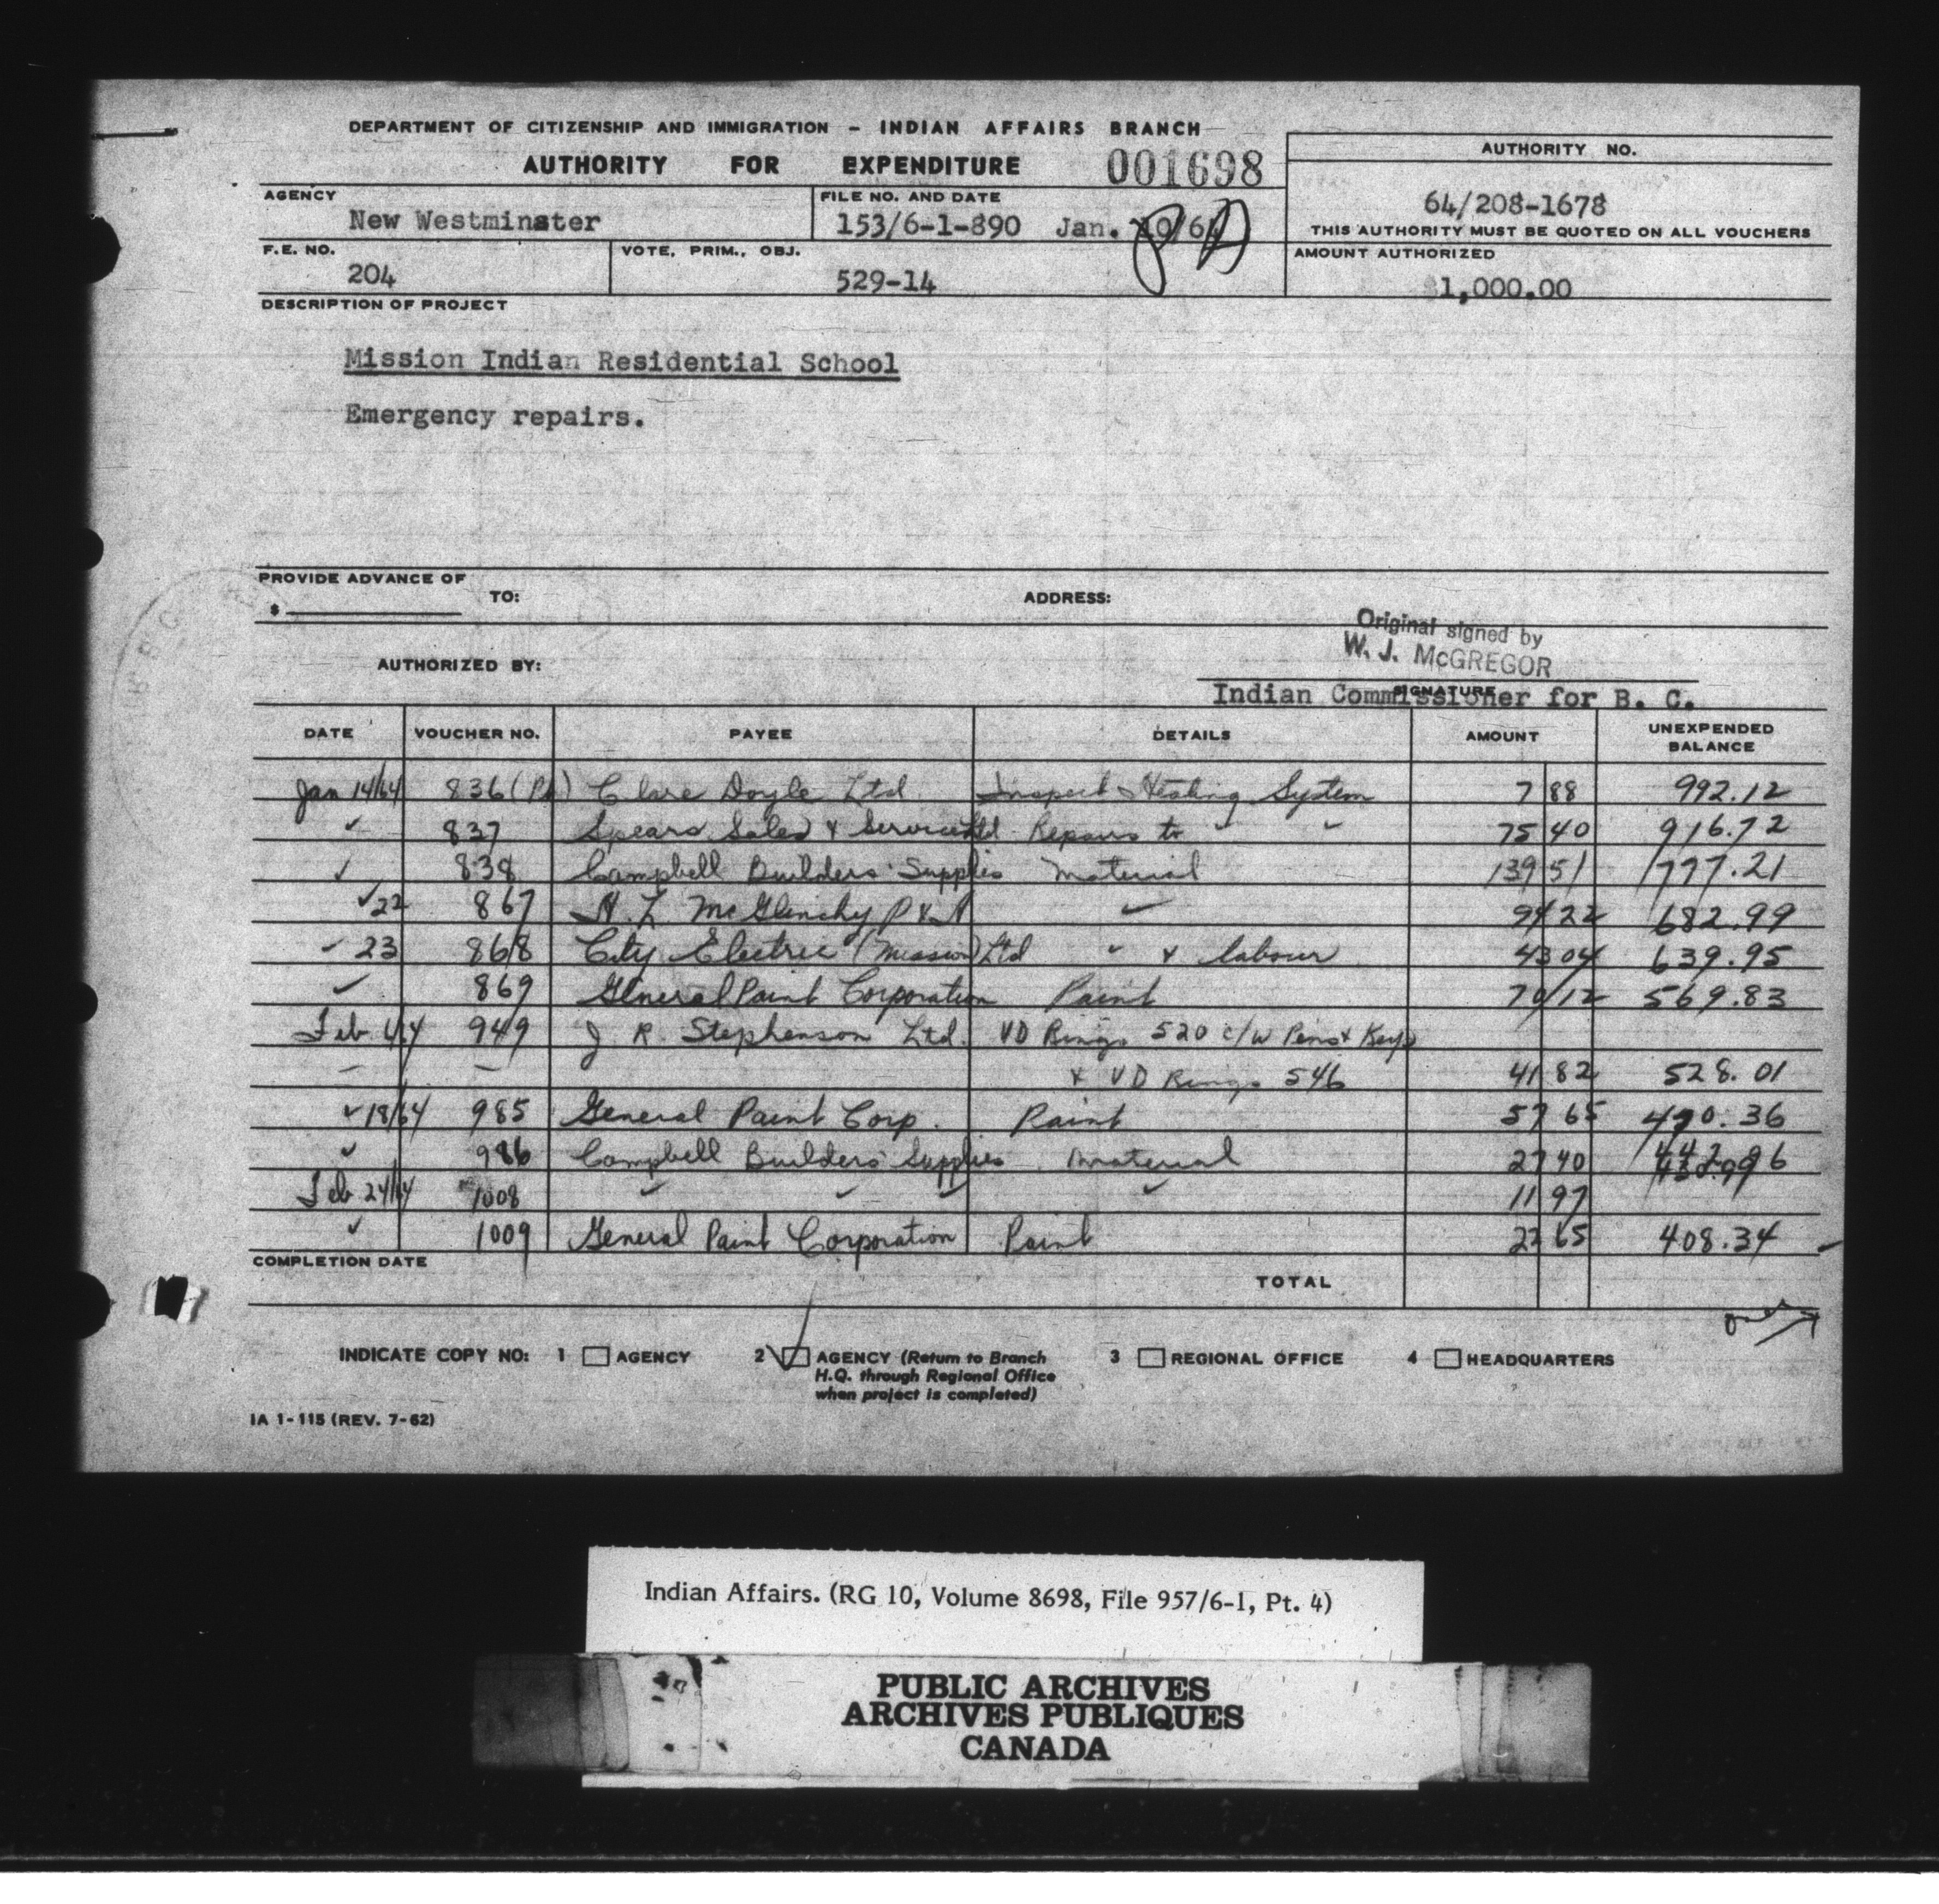 DEPARTMENT OF CITIZENSHIP AND IMMIGRATION - INDIAN AFFAIRS BRANCH
AUTHORITY FOR EXPENDITURE 001698
AUTHORITY NO.
64/208-1678
THIS AUTHORITY MUST BE QUOTED ON ALL VOUCHERS
AGENCY
New Westminster
FILE NO. AND DATE
153/6-1-890 Jan. 10/64
F.E. NO.
204
VOTE, PRIM., OBJ.
529-14
AMOUNT AUTHORIZED
$1,000.00
DESCRIPTION OF PROJECT
Mission Indian Residential School
Emergency repairs.
PROVIDE ADVANCE OF
$ TO: ADDRESS:
Original signed by
W. J. McGREGOR
AUTHORIZED BY:
SIGNATURE
Indian Commissioner for B. C.
DATE VOUCHER NO. PAYEE DETAILS AMOUNT UNEXPENDED BALANCE
Jan 14/64 836 Clare Doyle Ltd Inspect Heating System 7 88 992.12
✓ 837 Spears Sales & Service Ltd Repairs to " " 75 40 916.72
✓ 838 Campbell Builders' Supplies Material 139 51 777.21
✓ 22 867 McGlinchy P & H ✓ 94 22 682.99
✓ 23 868 City Electric (Mission) Ltd " & labour 43 04 639.95
✓ 869 General Paint Corporation Paint 70 12 569.83
Feb 949 J R. Stephenson Ltd. VD Rings 520 c/w Pins & Keys
& VD Rings 546 41 82 528.01
✓ 18/64 985 General Paint Corp. Paint 57 65 470.36
✓ 986 Campbell Builders' Supplies Material 27 40 442.96
Feb 24/64 1008 ✓ ✓ ✓ ✓ 11 97
✓ 1009 General Paint Corporation Paint 22 65 408.34
COMPLETION DATE
TOTAL
INDICATE COPY NO: 1 AGENCY 2 AGENCY (Return to Branch 3 REGIONAL OFFICE 4 HEADQUARTERS
H.Q. through Regional Office
when project is completed)
IA 1-115 (REV. 7-62)
Indian Affairs. (RG 10, Volume 8698, File 957/6-1, Pt. 4)
PUBLIC ARCHIVES
ARCHIVES PUBLIQUES
CANADA